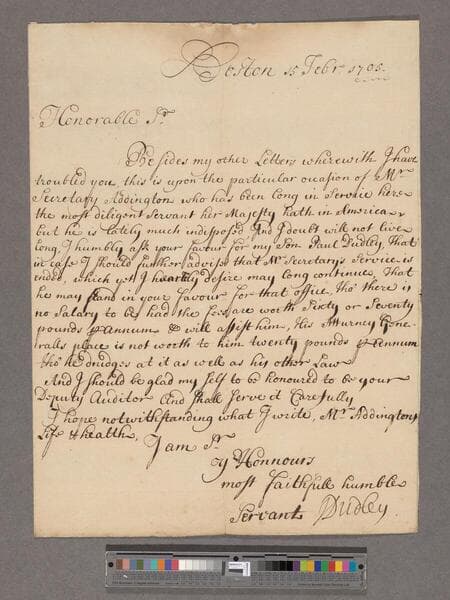 Boston 15 Febr. 1705.
Honorable Sr.
Besides my other Letters wherewith I have
troubled you, this is upon the particular occasion of Mr
Secretary Addington who has been long in Service here
the most diligent Servant her Majesty hath in America,
but he is lately much indisposed, And I doubt will not live
long, I humbly ask your favour for my Son Paul Dudley, That
in case I should further advise that Mr Secretary's Service is
ended, which yet I heartily desire may long continue, That
he may stand in your favour for that office, Tho' there is
no Salary to be had the fees are worth Sixty or Seventy
pounds P annum & will assist him, His Attorney Gene-
ralls place is not worth to him twenty pounds P annum
tho' he drudges at it as well as his other Law
And I should be glad my self to be honoured to be your
Deputy Auditor And shall Serve it Carefully
I hope notwithstanding what I write, Mr Addingtons
Life & health,
I am Sr.
Yr Honnours
most faithfull humble
Servant JDudley